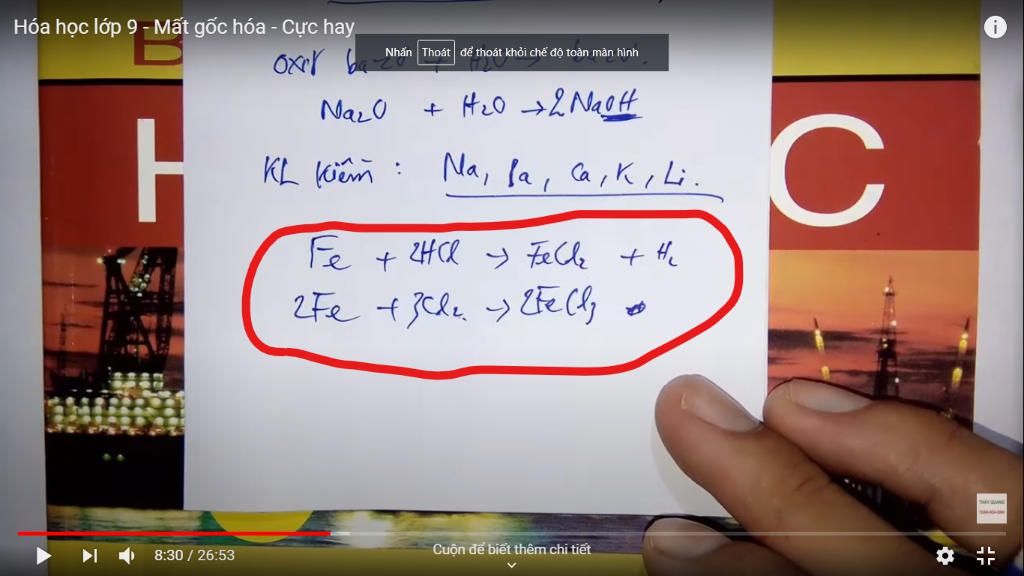 Hóa học lớp 9 - Mất gốc hóa - Cực hay
Nhấn Thoát để thoát khỏi chế độ toàn màn hình
B
oxit bazơ + H2O → bazơ.
Na2O + H2O → 2NaOH
H
C
KL kiềm : Na, Ba, Ca, K, Li.
Fe + 2HCl → FeCl2 + H2
2Fe + 3Cl2 → 2FeCl3
THẦY QUANG
8:30 / 26:53
Cuộn để biết thêm chi tiết